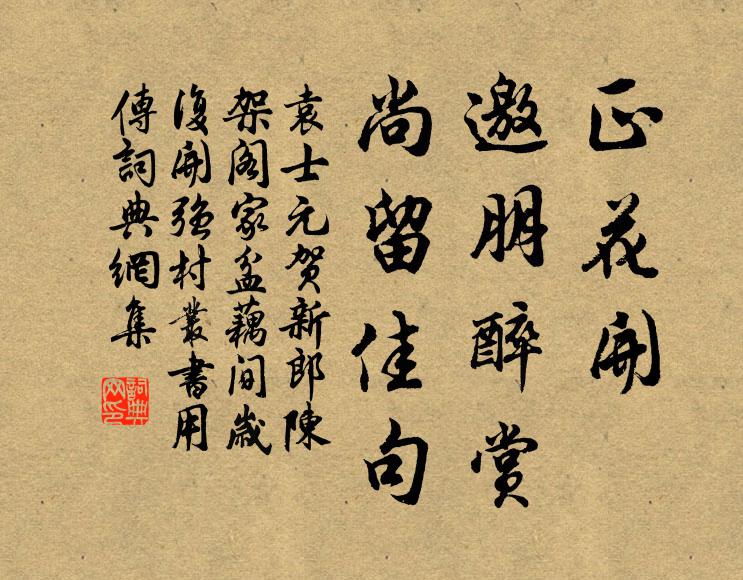 正花開
邀朋醉賞
尚留佳句
袁士元賀新郎陳
架閣家盆藕間歲
復開強村叢書用
傳詞典網集
詞典
网印